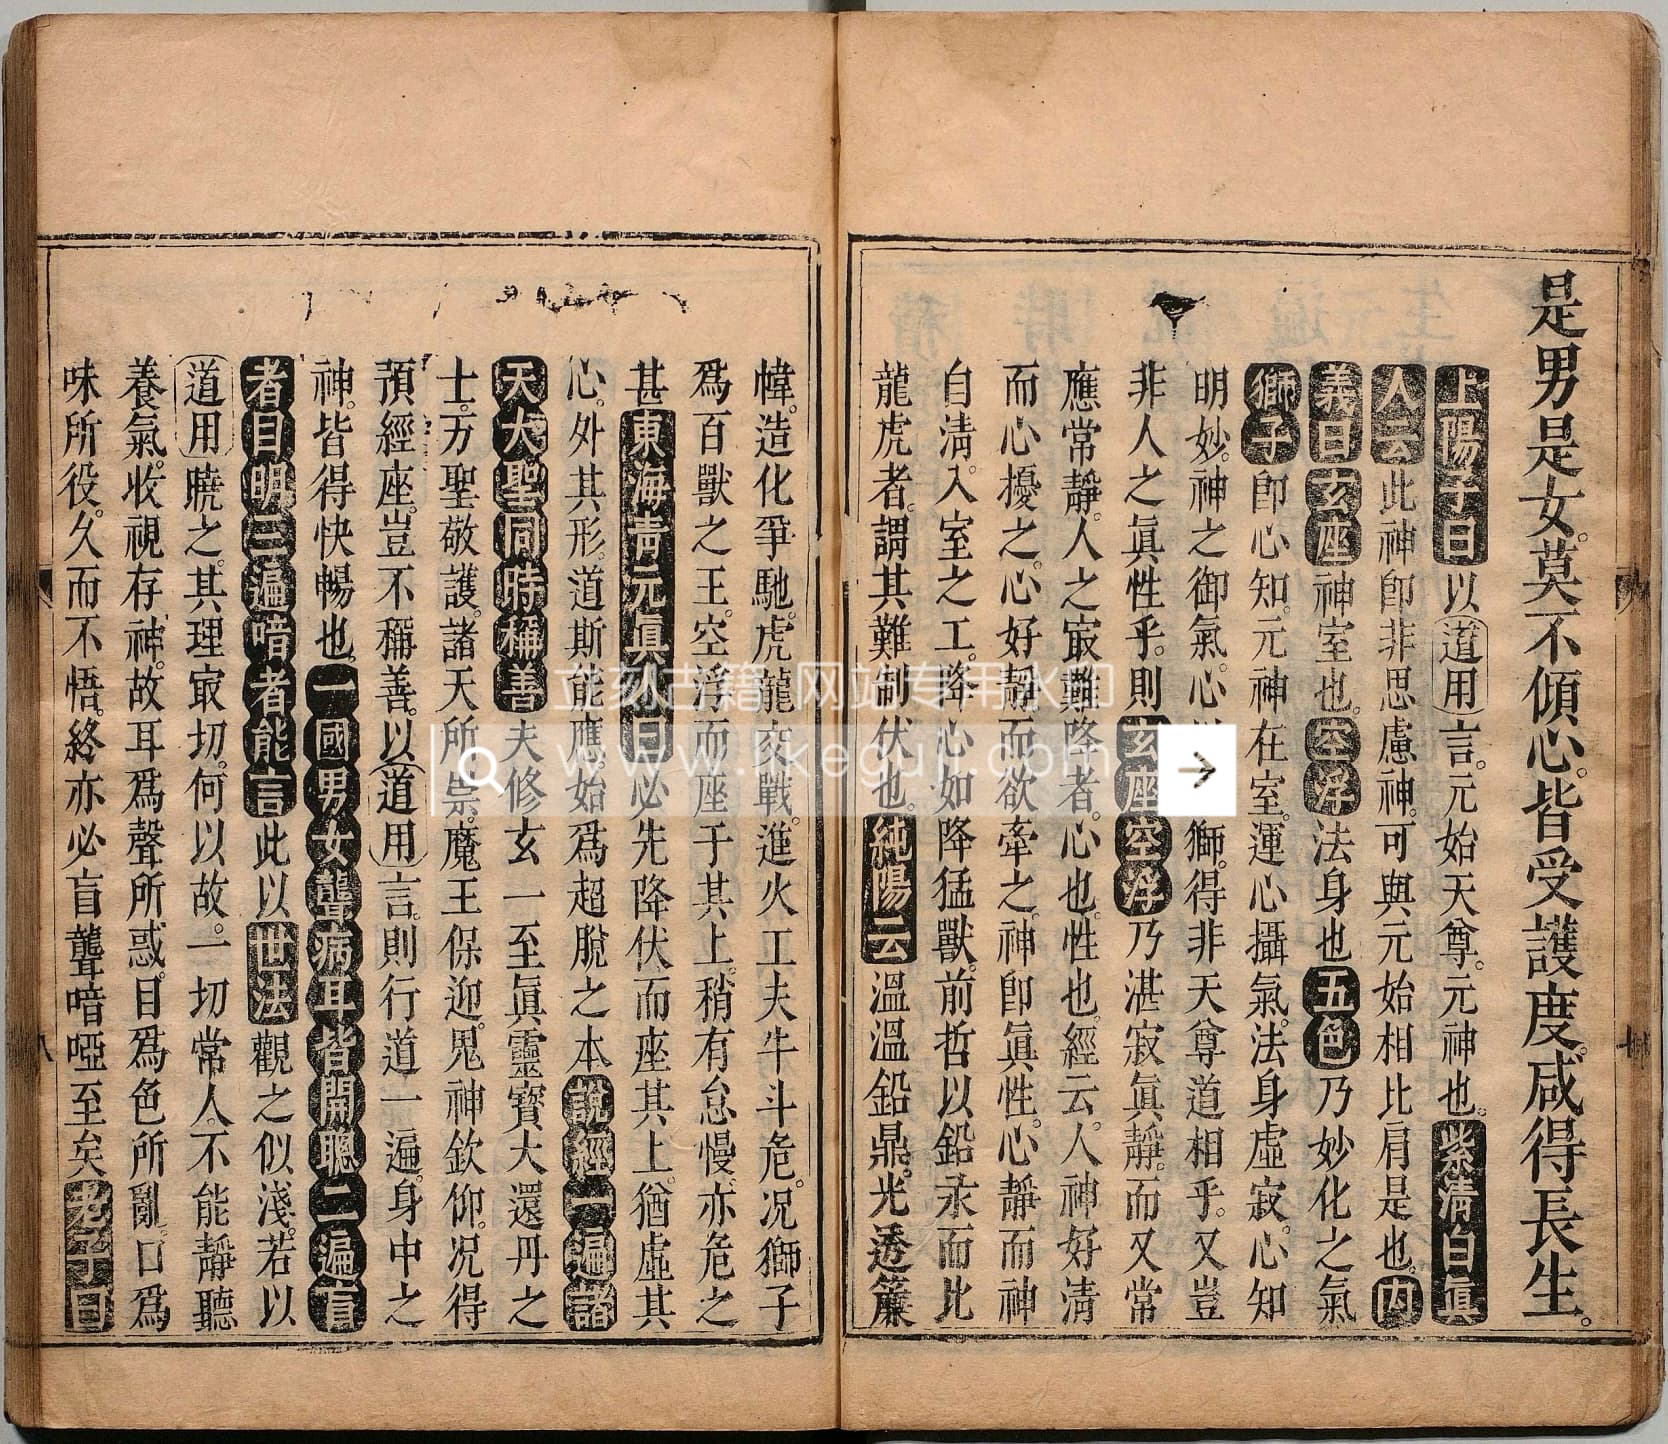 是男是女。莫不傾心。皆受護度。咸得長生。
上陽子曰以道用言。元始天尊。元神也。紫清白眞
人云此神卽非思慮神。可與元始相比肩是也。內
義曰玄座神室也。空浮法身也五色乃妙化之氣
獅子卽心知。元神在室。運心攝氣。法身虛寂。心知
明妙。神之御氣。心獅。得非天尊道相乎。又豈
非人之眞性乎。則玄座空浮乃湛寂眞靜。而又常
應常靜。人之㝡難降者。心也。性也。經云。人神好清
而心擾之。心好靜而欲牽之。神卽眞性。心靜而神
自清。入室之工。降心如降猛獸。前哲以鉛汞而比
龍虎者。謂其難制伏也。純陽云溫溫鉛鼎。光透簾
幃。造化爭馳。虎龍交戰。進火工夫牛斗危。况獅子
爲百獸之王。空浮而座于其上。稍有怠慢。亦危之
甚東海靑元眞人曰必先降伏而座其上。猶虛其
心。外其形。道斯能應。始爲超脫之本說經一遍諸
天大聖同時稱善夫修玄一至眞靈寶大還丹之
士。万聖敬護。諸天所祟。魔王保迎。鬼神欽仰。况得
預經座。豈不稱善。以道用言。則行道一遍。身中之
神。皆得快暢也。一國男女聾病耳皆開聰二遍盲
者目明三遍喑者能言此以世法觀之似淺。若以
道用曉之。其理㝡切。何以故。一切常人。不能靜聽
養氣。收視存神。故耳爲聲所惑。目爲色所亂。口爲
味所役。久而不悟。終亦必盲聾喑啞至矣老子曰
立刻古籍 网站专用水印
www.lkeguji.com